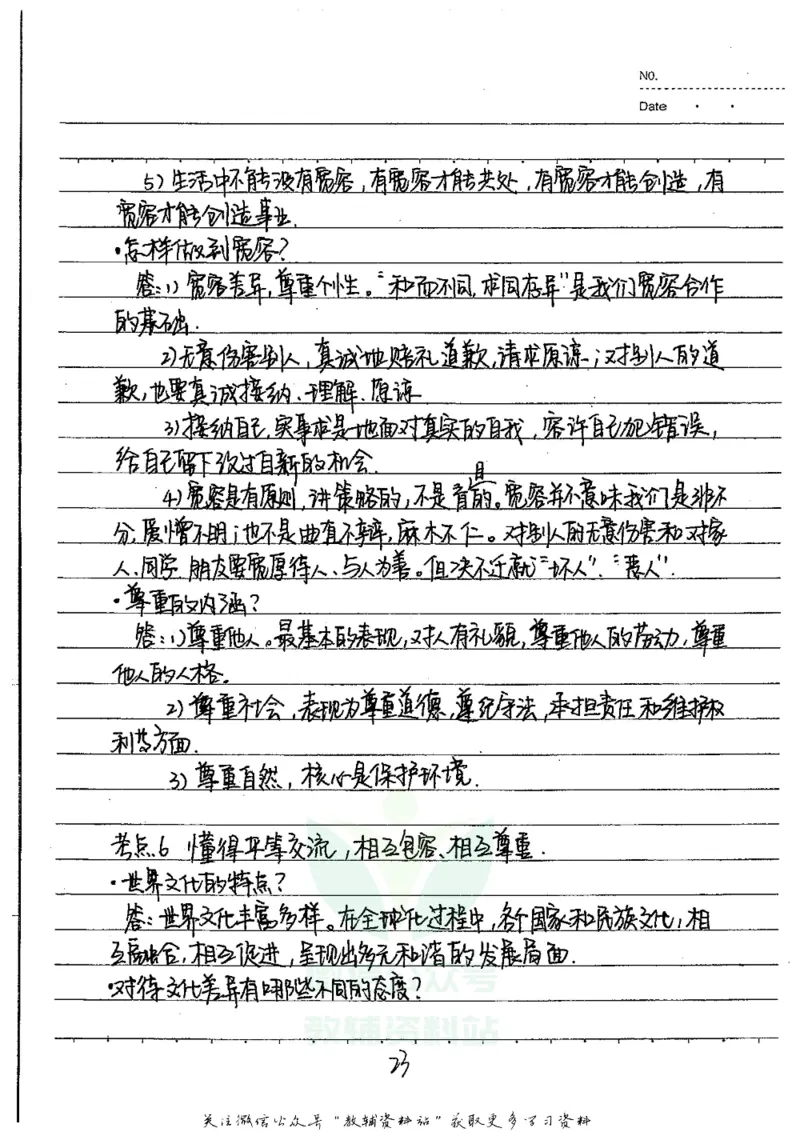 NO.
Date
5)生活中不能没有宽容,有宽容才能共处,有宽容才能创造,有
宽容才能创造事业.
·怎样做到宽容?
答:1)宽容差异,尊重个性。“和而不同,求同存异”是我们宽容合作
的基础.
2)无意伤害别人,真诚地赔礼道歉,请求原谅;对别人的道
歉,也要真诚接纳、理解、原谅
3)接纳自己,实事求是地面对真实的自我,容许自己犯错误,
给自己留下改过自新的机会.
4)宽容是有原则,讲策略的,不是盲目的。宽容并不意味我们是非不
分,爱憎不明;也不是曲直不辨,麻木不仁。对别人的无意伤害和对家
人、同学、朋友要宽厚待人、与人为善。但决不迁就“坏人”、“恶人”.
·尊重的内涵?
答:1)尊重他人。最基本的表现,对人有礼貌,尊重他人的劳动,尊重
他人的人格。
2)尊重社会,表现为尊重道德,遵纪守法,承担责任和维护权
利等方面.
3)尊重自然,核心是保护环境.
考点6 懂得平等交流,相互包容、相互尊重.
·世界文化的特点?
答:世界文化丰富多样。在全球化过程中,各个国家和民族文化,相
互融合,相互促进,呈现出多元和谐的发展局面.
·对待文化差异有哪些不同的态度?
教辅资料站
23
关注微信公众号“教辅资料站”获取更多学习资料